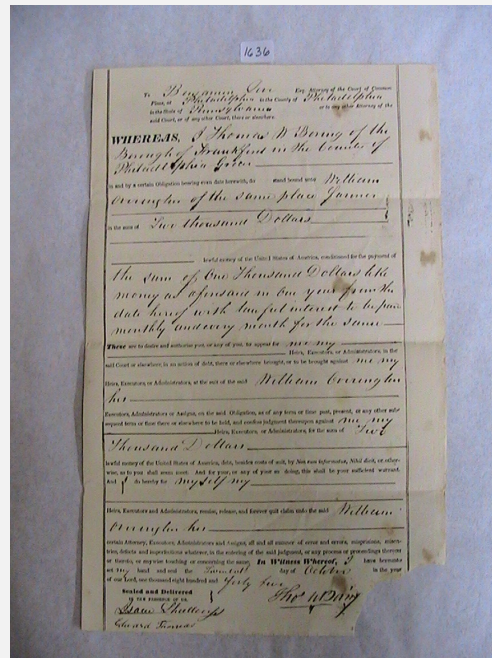 1636
To Benjamin Esq. Attorney of the Court of Common
Pleas, at Philadelphia in the County of Philadelphia
in the State of Pennsylvania or to any other Attorney of the
said Court, or of any other Court, there or elsewhere.
WHEREAS, I Thomas W. of the
Borough of Frankford in the County of
Philadelphia
in and by a certain Obligation bearing even date herewith, do stand bound unto William
of the same place
in the sum of Two thousand Dollars
lawful money of the United States of America, conditioned for the payment of
the sum of One Thousand Dollars like
money as aforesaid in one year from the
date hereof with lawful interest to be paid
monthly and every month for the same
These are to desire and authorise you, or any of you, to appear for me my
Heirs, Executors, or Administrators, in the
said Court or elsewhere, in an action of debt, there or elsewhere brought, or to be brought against me my
Heirs, Executors, or Administrators, at the suit of the said William
his
Executors, Administrators or Assigns, on the said Obligation, as of any term or time past, present, or any other subsequent
term or time there or elsewhere to be held, and confess judgment thereupon against me my
Heirs, Executors, or Administrators, for the sum of Two
Thousand Dollars
lawful money of the United States of America, debt, besides costs of suit, by Non sum informatus, Nihil dicit, or otherwise,
as to you shall seem meet. And for your, or any of your so doing, this shall be your sufficient warrant.
And I do hereby for myself my
Heirs, Executors and Administrators, remise, release, and forever quit claim unto the said William
his
certain Attorney, Executors, Administrators and Assigns, all and all manner of error and errors, misprisions, misentries,
defects and imperfections whatever, in the entering of the said judgment, or any process or proceedings thereon
or thereto, or anywise touching or concerning the same. In Witness Whereof, I have hereunto
set my hand and seal the day of October in the year
of our Lord, one thousand eight hundred and forty two
Sealed and Delivered
IN THE PRESENCE OF US,
Thos W
Isaac
Edward